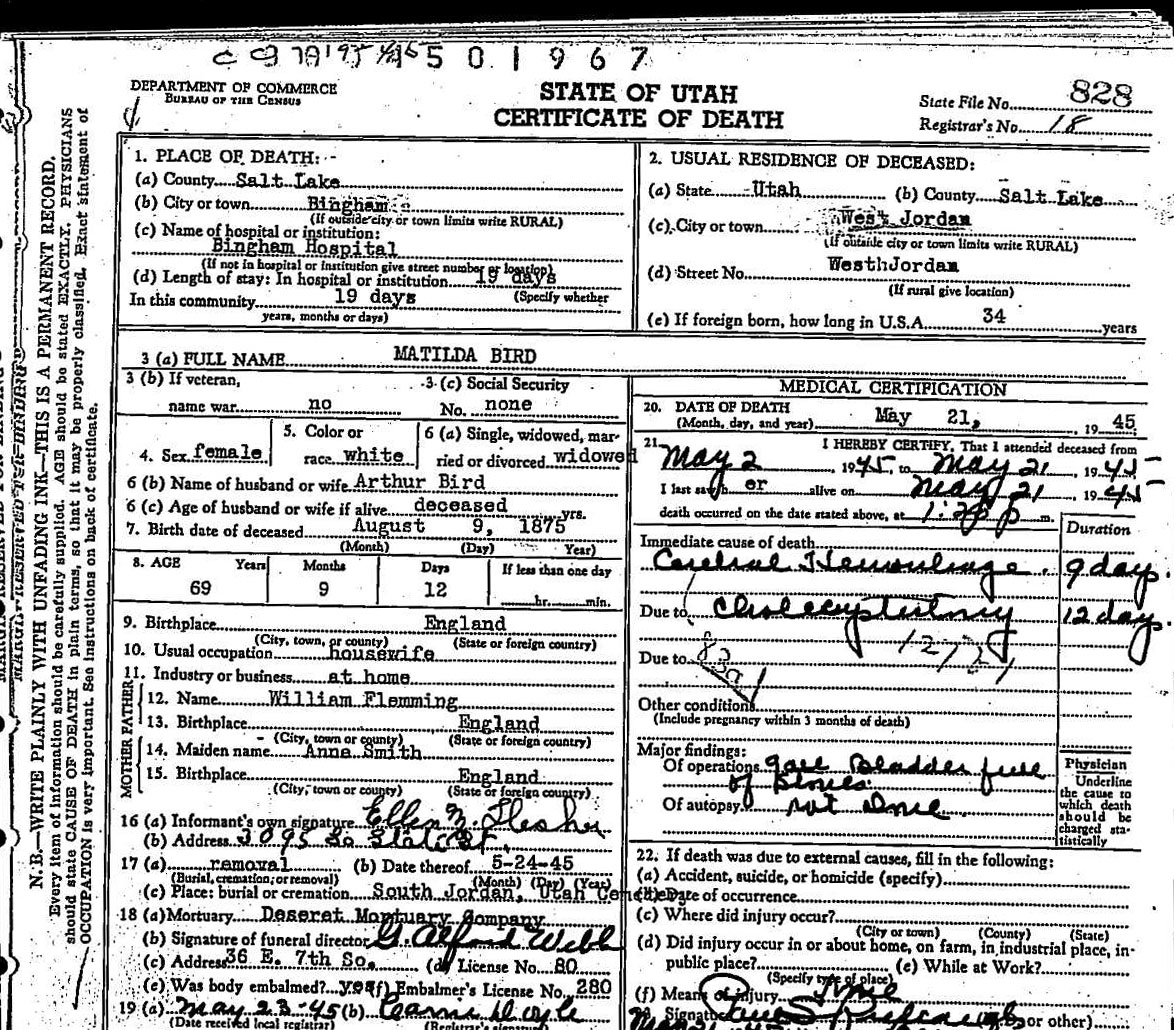 501967
DEPARTMENT OF COMMERCE
BUREAU OF THE CENSUS
STATE OF UTAH
CERTIFICATE OF DEATH
State File No. 828
Registrar's No. 18
N. B.—WRITE PLAINLY WITH UNFADING INK—THIS IS A PERMANENT RECORD.
Every item of information should be carefully supplied. AGE should be stated EXACTLY. PHYSICIANS
should state CAUSE OF DEATH in plain terms, so that it may be properly classified. Exact statement of
OCCUPATION is very important. See instructions on back of certificate.
1. PLACE OF DEATH:
(a) County Salt Lake
(b) City or town Bingham
(If outside city or town limits write RURAL)
(c) Name of hospital or institution:
Bingham Hospital
(If not in hospital or institution give street number or location)
(d) Length of stay: In hospital or institution 19 days
(Specify whether
In this community 19 days
years, months or days)
2. USUAL RESIDENCE OF DECEASED:
(a) State Utah (b) County Salt Lake
(c) City or town West Jordan
(If outside city or town limits write RURAL)
(d) Street No. WesthJordan
(If rural give location)
(e) If foreign born, how long in U.S.A. 34 years
3 (a) FULL NAME MATILDA BIRD
3 (b) If veteran, 3 (c) Social Security
name war no No. none
4. Sex female 5. Color or race white 6 (a) Single, widowed, married or divorced widowed
6 (b) Name of husband or wife Arthur Bird
6 (c) Age of husband or wife if alive deceased yrs.
7. Birth date of deceased August 9, 1875
(Month) (Day) Year)
8. AGE Years Months Days If less than one day
69 9 12 hr. min.
9. Birthplace England
(City, town, or county) (State or foreign country)
10. Usual occupation housewife
11. Industry or business at home
FATHER
12. Name William Flemming
13. Birthplace England
(City, town or county) (State or foreign country)
MOTHER
14. Maiden name Anne Smith
15. Birthplace England
(City, town or county) (State or foreign country)
16 (a) Informant's own signature Ellen M.
(b) Address 3095 So State St.
17 (a) removal (b) Date thereof 5-24-45
(Burial, cremation, or removal) (Month) (Day) (Year)
(c) Place: burial or cremation South Jordan, Utah Cemetery
18 (a) Mortuary Deseret Mortuary Company
(b) Signature of funeral director G. Alford Webb
(c) Address 36 E. 7th So. (d) License No. 80
(e) Was body embalmed? yes (f) Embalmer's License No. 280
19 (a) May 23-45 (b)
(Date received local registrar) (Registrar's signature)
MEDICAL CERTIFICATION
20. DATE OF DEATH May 21, 19 45
(Month, day, and year)
21. I HEREBY CERTIFY, That I attended deceased from
May 2, 1945, to May 21, 1945
I last saw h er alive on May 21, 1945
death occurred on the date stated above, at m.
Duration
Immediate cause of death
Cerebral Hemorrhage 9 day.
Due to Cholecystectomy 12 day.
Due to
Other conditions
(Include pregnancy within 3 months of death)
Major findings:
Of operations gall Bladder full
of Stones
Of autopsy not done
Physician
Underline the cause to which death should be charged statistically
22. If death was due to external causes, fill in the following:
(a) Accident, suicide, or homicide (specify)
Date of occurrence
(c) Where did injury occur?
(City or town) (County) (State)
(d) Did injury occur in or about home, on farm, in industrial place, in
public place? (e) While at Work?
(Specify type of place)
(f) Means of injury
Signature or other)